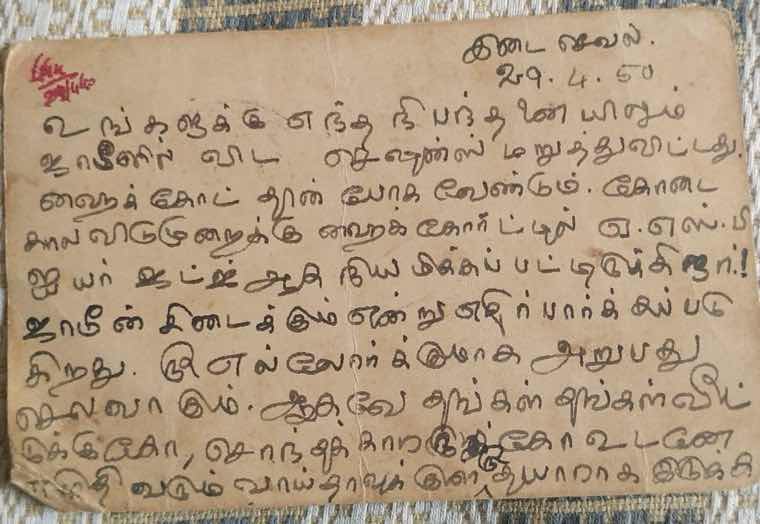 இடை செவல்.
29.4.50
உங்களுக்கு எந்த நிபந்தனையிலும்
ஜாமீனில் விட செஷன்ஸ் மறுத்துவிட்டது.
ஹைக் கோட் தான் போக வேண்டும். கோடை
கால விடுமுறைக்கு ஹைக் கோர்ட்டில் ஏ.எஸ்.பி
ஐயர் ஜட்ஜ் ஆக நியமிக்கப் பட்டிருக்கிறார்!
ஜாமீன் கிடைக்கும் என்று எதிர்பார்க்கப்படு
கிறது. ரூ எல்லோர்க்குமாக அறுபது
செலவாகும். ஆகவே தங்கள் தங்கள் வீட்
டுக்குகோ, சொந்தக்காறருக்கோ உடனே
வரும் வாய்தாவுக்குள் தயாறாக இருக்க